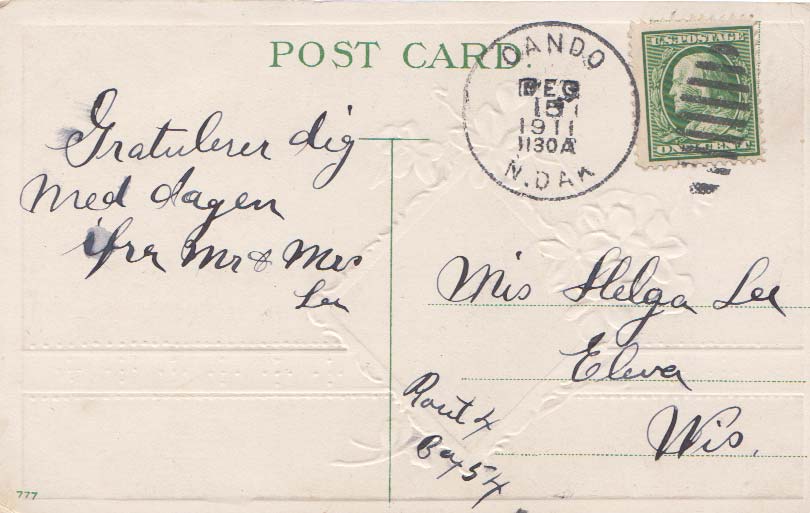 POST CARD.
CANDO
DEC
15
1911
1130A
N. DAK
U.S. POSTAGE
ONE CENT
Gratulerer dig
med dagen
ifra Mr & Mrs
Lee
Mis Helga Lee
Eleva
Wis.
Rout 4
Box 54
777